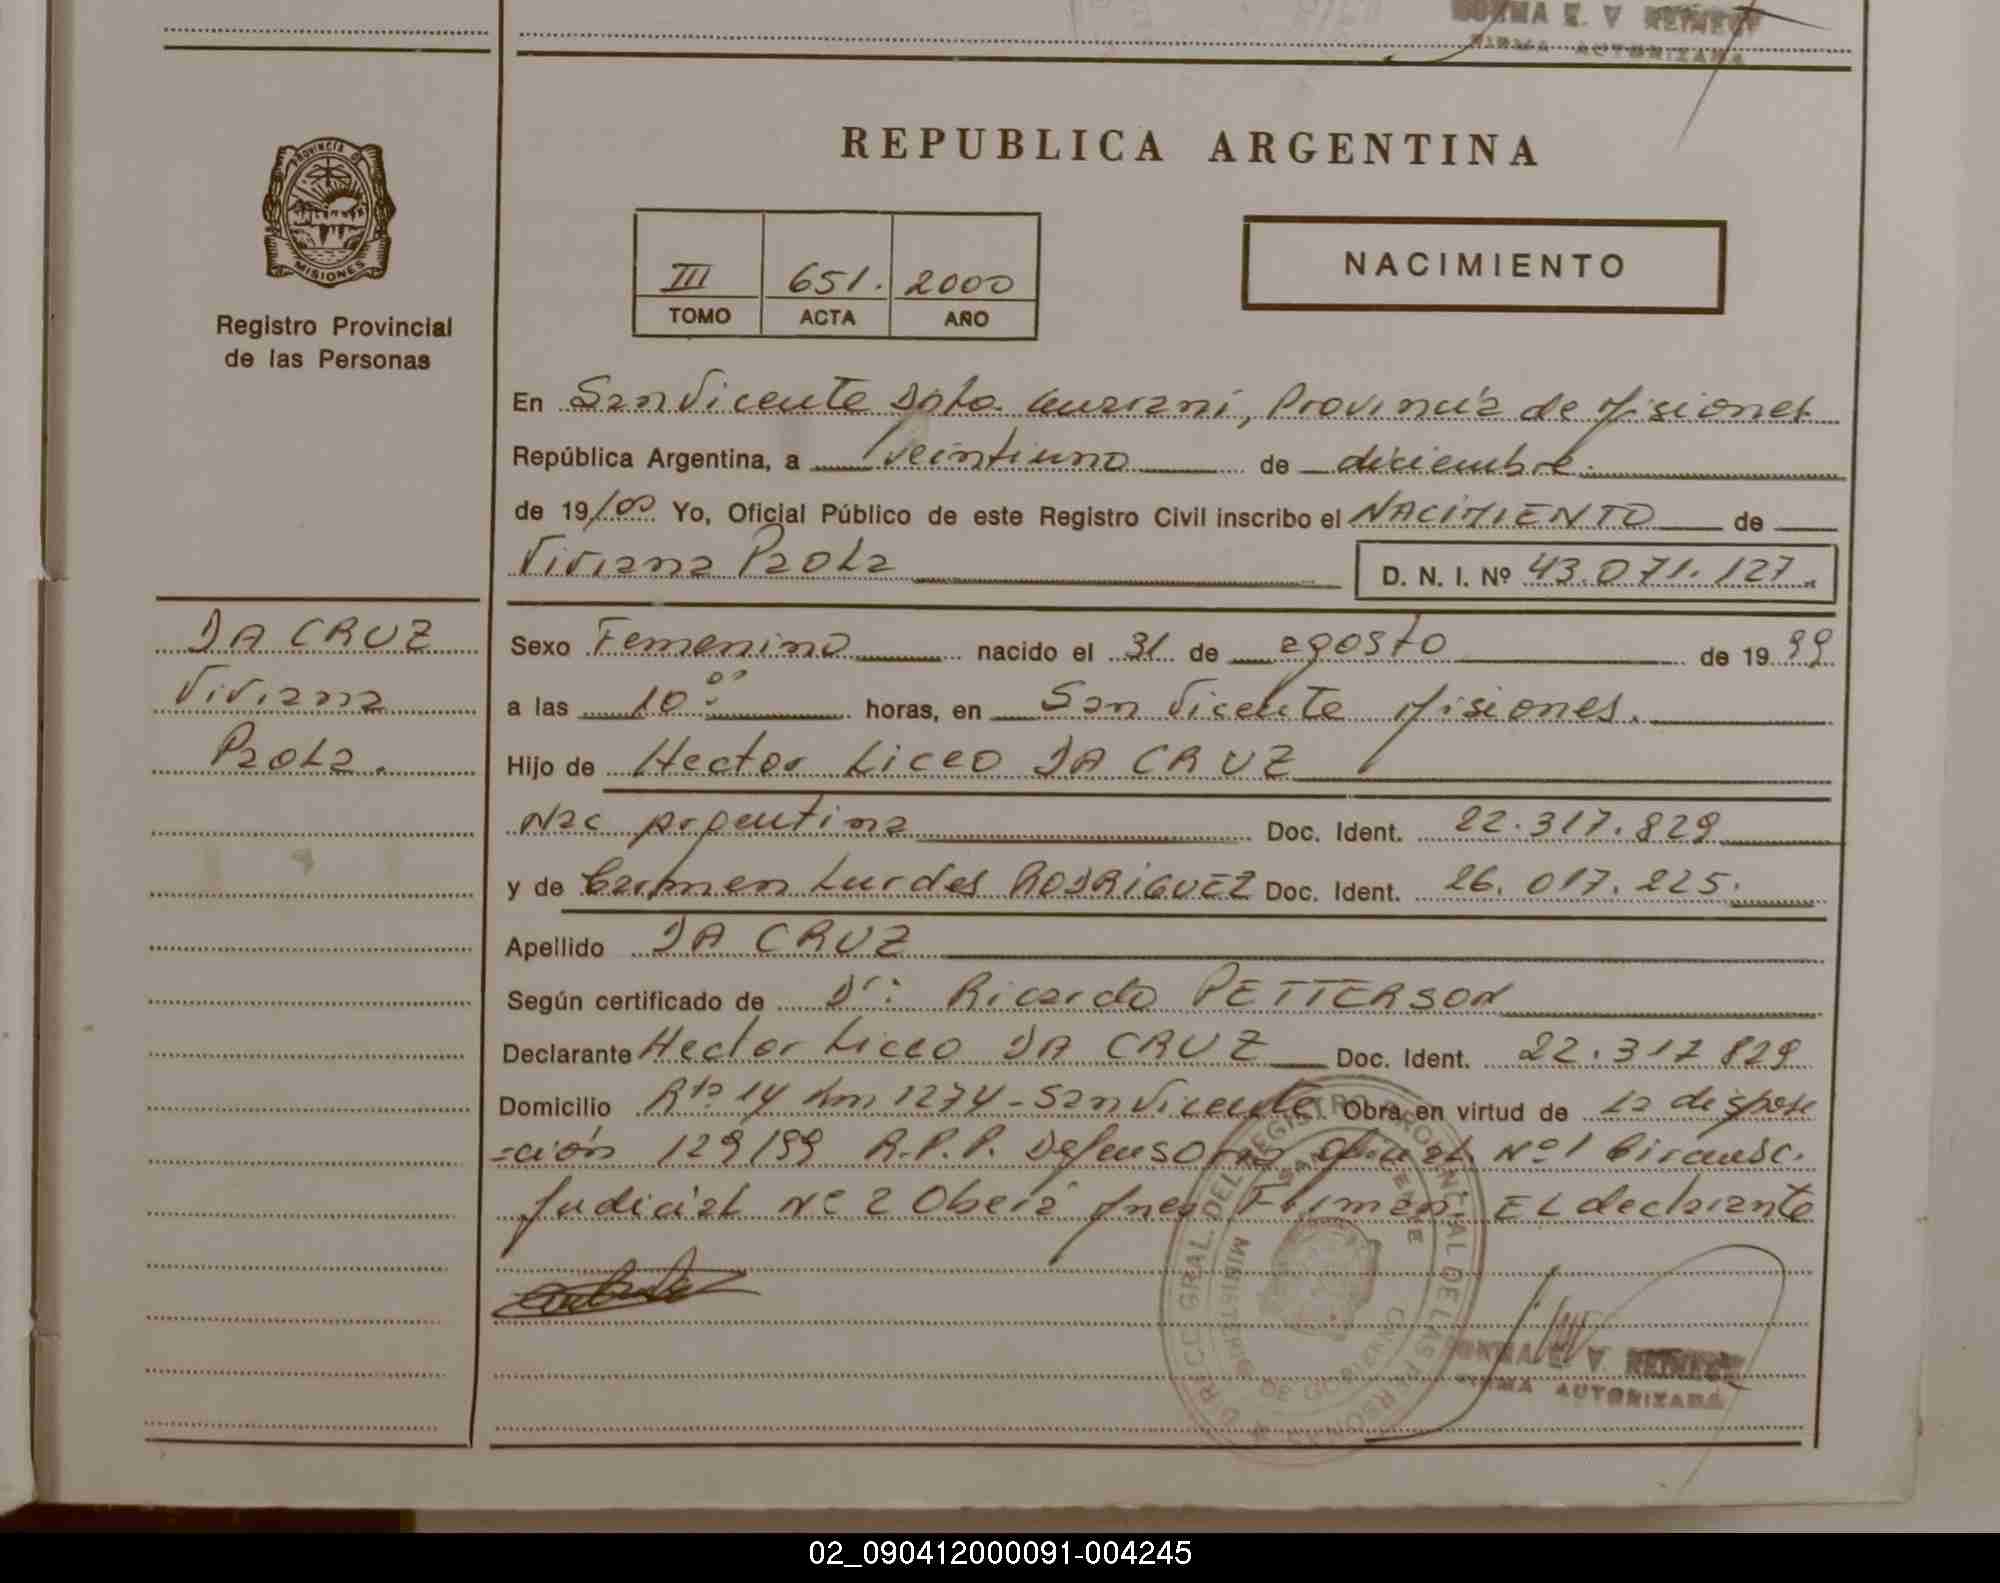 NORMA E. V. REINECK
FIRMA AUTORIZADA
REPUBLICA ARGENTINA
PROVINCIA DE
MISIONES
Registro Provincial
de las Personas
III 651. 2000
TOMO ACTA AÑO
NACIMIENTO
En San Vicente Dpto. Guarani, Provincia de Misiones
República Argentina, a veintiuno de diciembre.
de 19/00 Yo, Oficial Público de este Registro Civil inscribo el NACIMIENTO de
Viviana Paola D. N. I. Nº 43.071.127.
DA CRUZ
Viviana
Paola.
Sexo Femenino nacido el 31 de agosto de 1999
a las 10:00 horas, en San Vicente Misiones.
Hijo de Hector Liceo DA CRUZ
Nac Argentina Doc. Ident. 22.317.829
y de Carmen Lurdes RODRIGUEZ Doc. Ident. 26.017.225.
Apellido DA CRUZ
Según certificado de Dr: Ricardo PETTERSON
Declarante Hector Liceo DA CRUZ Doc. Ident. 22.317829
Domicilio Rta 14 km 1274-San Vicente Obra en virtud de la disposi
=ción 129/99 R.P.P. Defensoria Oficial Nº1 Circunsc.
Judicial Nº 2 Obera Mnes Firman: EL declarante
DIRECC. GRAL. DEL REGISTRO PROVINCIAL DE LAS PERSONAS
SAN VICENTE
MINISTERIO DE GOBIERNO
NORMA E. V. REINECK
FIRMA AUTORIZADA
02_090412000091-004245